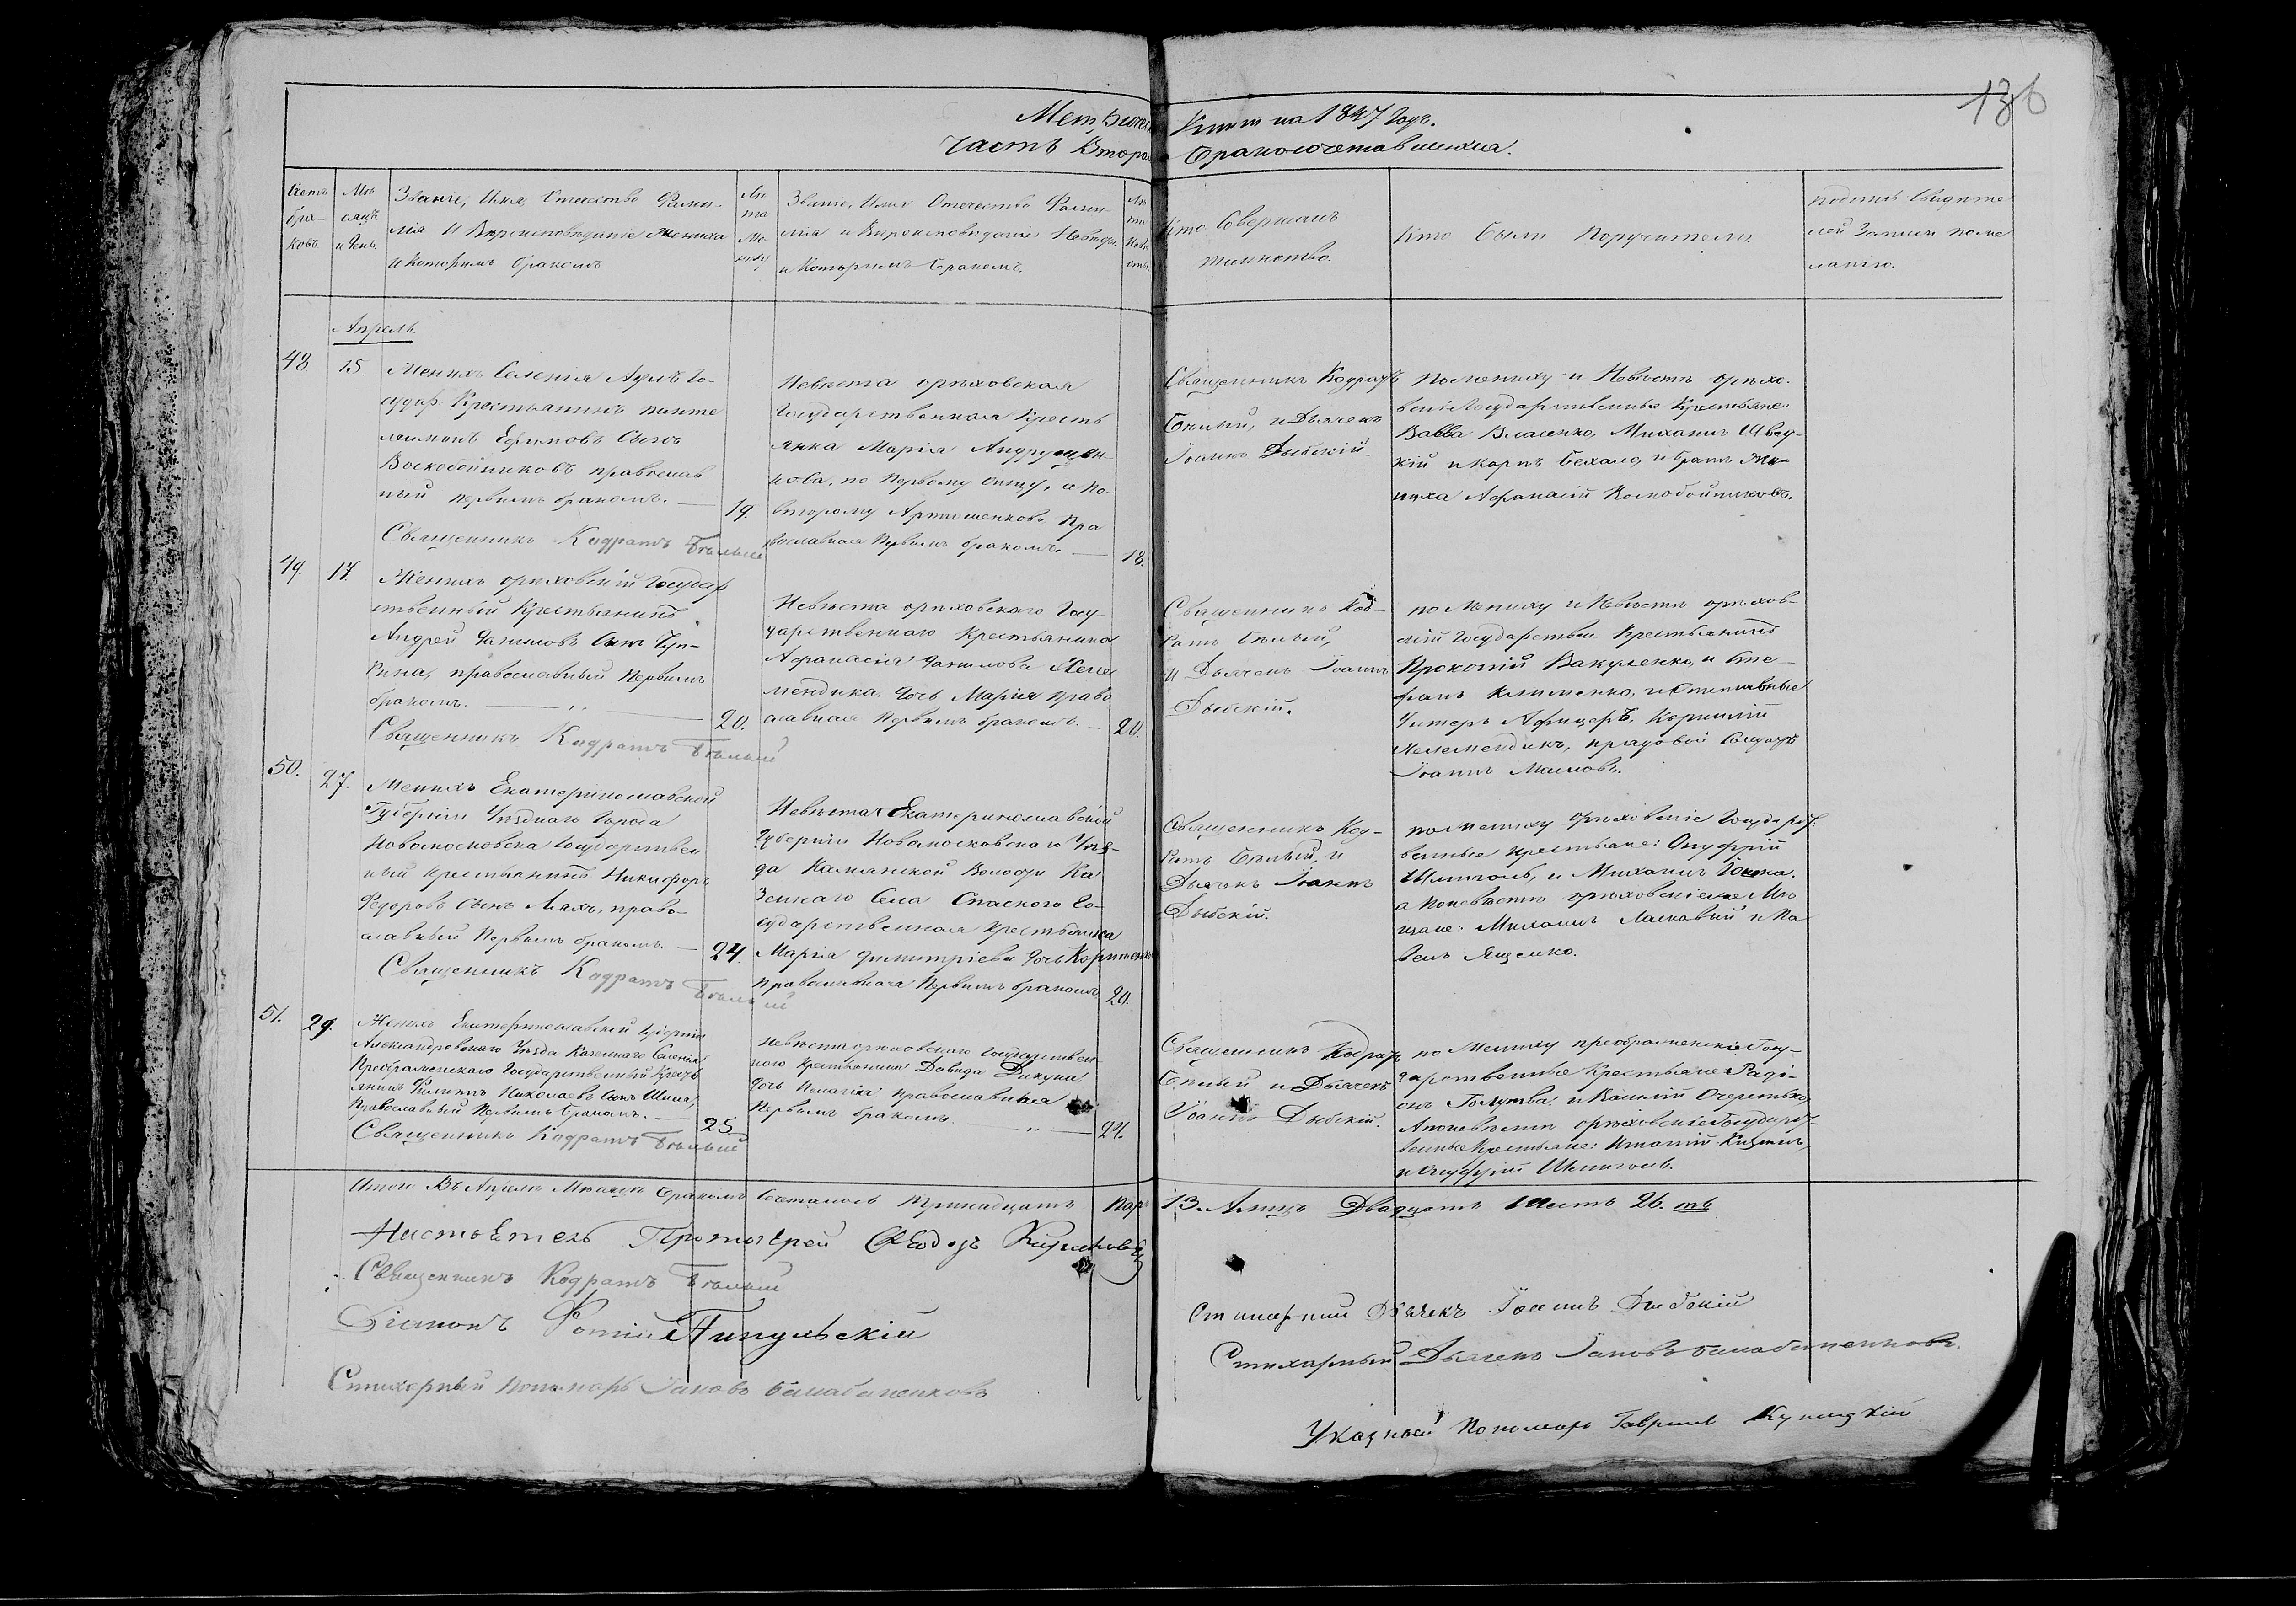 136
Метрической Книги на 1847 Годъ.
Часть Вторая о Бракосочетавшихся.
Счетъ бра- ковъ.
Мѣ сяцъ и День.
Званіе, Имя, Отечество Фами-
лія И Вѣроисповѣданіе Жениха
и Которымъ бракомъ
Лѣ та Же- ниху
Званіе, Имя Отечество Фами-
лія и Вѣроисповѣданіе Невѣсты
и Которымъ бракомъ.
Лѣ та Невѣ стѣ.
Кто Совершалъ
таинство.
Кто Были Поручители
подпись Свидѣте
лей Записи по же
ланію.
Апрель.
48. 15.
Женихъ Селенія
Крестьянинъ Панте
леимонъ Ефимовъ Сынъ
Воскобойниковъ православ
ный первымъ бракомъ. 19.
Священникъ Кодратъ Бѣлый
Невѣста орѣховская
Государственная Кресть
янка Марія Андрущен-
кова, по Первому отцу, а по-
второму Артюшенкова Пра
вославная Первымъ бракомъ. 18.
Священникъ Кодратъ
Бѣлый, и Дьячекъ
Іоаннъ Дыбскій
По жениху и Невѣстѣ орѣхо-
вскіе Государственные Крестьяне:
Савва Власенко, Михаилъ Швед-
кій и Карпъ и братъ Же-
ниха Афанасій Воскобойниковъ.
49. 17.
Женихъ орѣховскій Государ
ственный Крестьянинъ
Андрей Даниловъ Сынъ Чуп-
рина, православный Первымъ
бракомъ. 20.
Священникъ Кодратъ Бѣлый
Невѣста орѣховскаго Госу-
дарственнаго Крестьянина
Афанасія Данилова Желе
мендика Дочь Марія право
славная Первымъ бракомъ. 20.
Священникъ Код-
ратъ Бѣлый,
и Дьячекъ Іоаннъ
Дыбскій.
по Жениху и Невѣстѣ орѣхов-
скій Государствен. Крестьянинъ
Прокопій Вакуленко, и Сте-
фанъ Клименко, и Отставные
Унтеръ Афицеръ, Корнилій
рядовой Солдатъ
Іоаннъ Маиловъ.
50. 27.
Женихъ Екатеринославской
Губерніи Уѣзднаго Города
Новомосковска Государствен
ный Крестьянинъ Никифоръ
Федоровъ Сынъ Ляхъ, право-
славный Первымъ бракомъ. 24.
Священникъ Кодратъ Бѣлый
Невѣста Екатеринославской
Губерніи Новомосковскаго Уѣз-
да Каманской Волости Ка
зеннаго Села Спаского Го-
сударственная Крестьянка
Марія Димитріева Дочь
Православная Первымъ бракомъ 20.
Священникъ Код-
ратъ Бѣлый, и
Дьячекъ Іоаннъ
Дыбскій.
по Жениху Орѣховскіе Государст-
венные крестьяне: Онуфрій
и Михаилъ
а по невѣстѣ орѣховскіе Мѣ
щане: Михаилъ Ласкавый и Па
велъ Яценко.
51. 29.
Женихъ Екатеринославской Губерніи
Александровскаго Уѣзда Казеннаго Селенія
Преображенскаго Государственный Кресть
янинъ Филиппъ Николаевъ Сынъ Шина,
Православный Первымъ бракомъ. 25
Священникъ Кодратъ Бѣлый
Невѣста орѣховскаго Государствен
наго Крестьянина Давида Дикуна
Дочь Пелагія православная
Первымъ бракомъ. 24.
Священникъ Кодратъ
Бѣлый и Дьячекъ
Іоаннъ Дыбскій.
по Жениху преображенскіе Госу-
дарственные Крестьяне: Радi-
онъ Голутва и Василій Очеретько
А по невѣстѣ орѣховскіе Государст-
венные Крестьяне: Игнатій
и Онуфрій
Итого Въ Апрелѣ Мѣсяцѣ бракомъ Сочталось тринадцать Паръ 13. Лицъ Двадцать Шесть 26.ть
Настоятель Протоіерей Ѳеодоръ
Священникъ Кодратъ Бѣлый
Діаконъ Фотій Пигульскій
Стихарный пономарь Іаковъ Балабаненковъ
Стихарный Дьячекъ Іоаннъ Дыбскій
Стихарный Дьячекъ Іаковъ Балабаненковъ.
Указный Пономарь Гавріилъ Куницкій